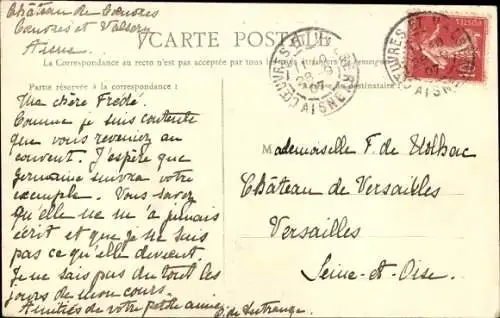 Château de Cœuvres
Cœuvres et Valsery
Aisne
CARTE POSTALE
La Correspondance au recto n'est pas acceptée par tous les pays étrangers
Partie réservée à la correspondance :
du destinataire :
CŒUVRES
AISNE
28
07
10
Ma chère Frédé.
Comme je suis contente
que vous reveniez au
couvent. J'espère que
Germaine suivra votre
exemple. Vous savez
qu'elle ne m'a jamais
écrit et que je ne sais
pas ce qu'elle devient.
Je ne sais pas du tout les
jours de mon cours.
Amitiés de votre petite amie
Mademoiselle F. de
Château de Versailles
Versailles
Seine-et-Oise.